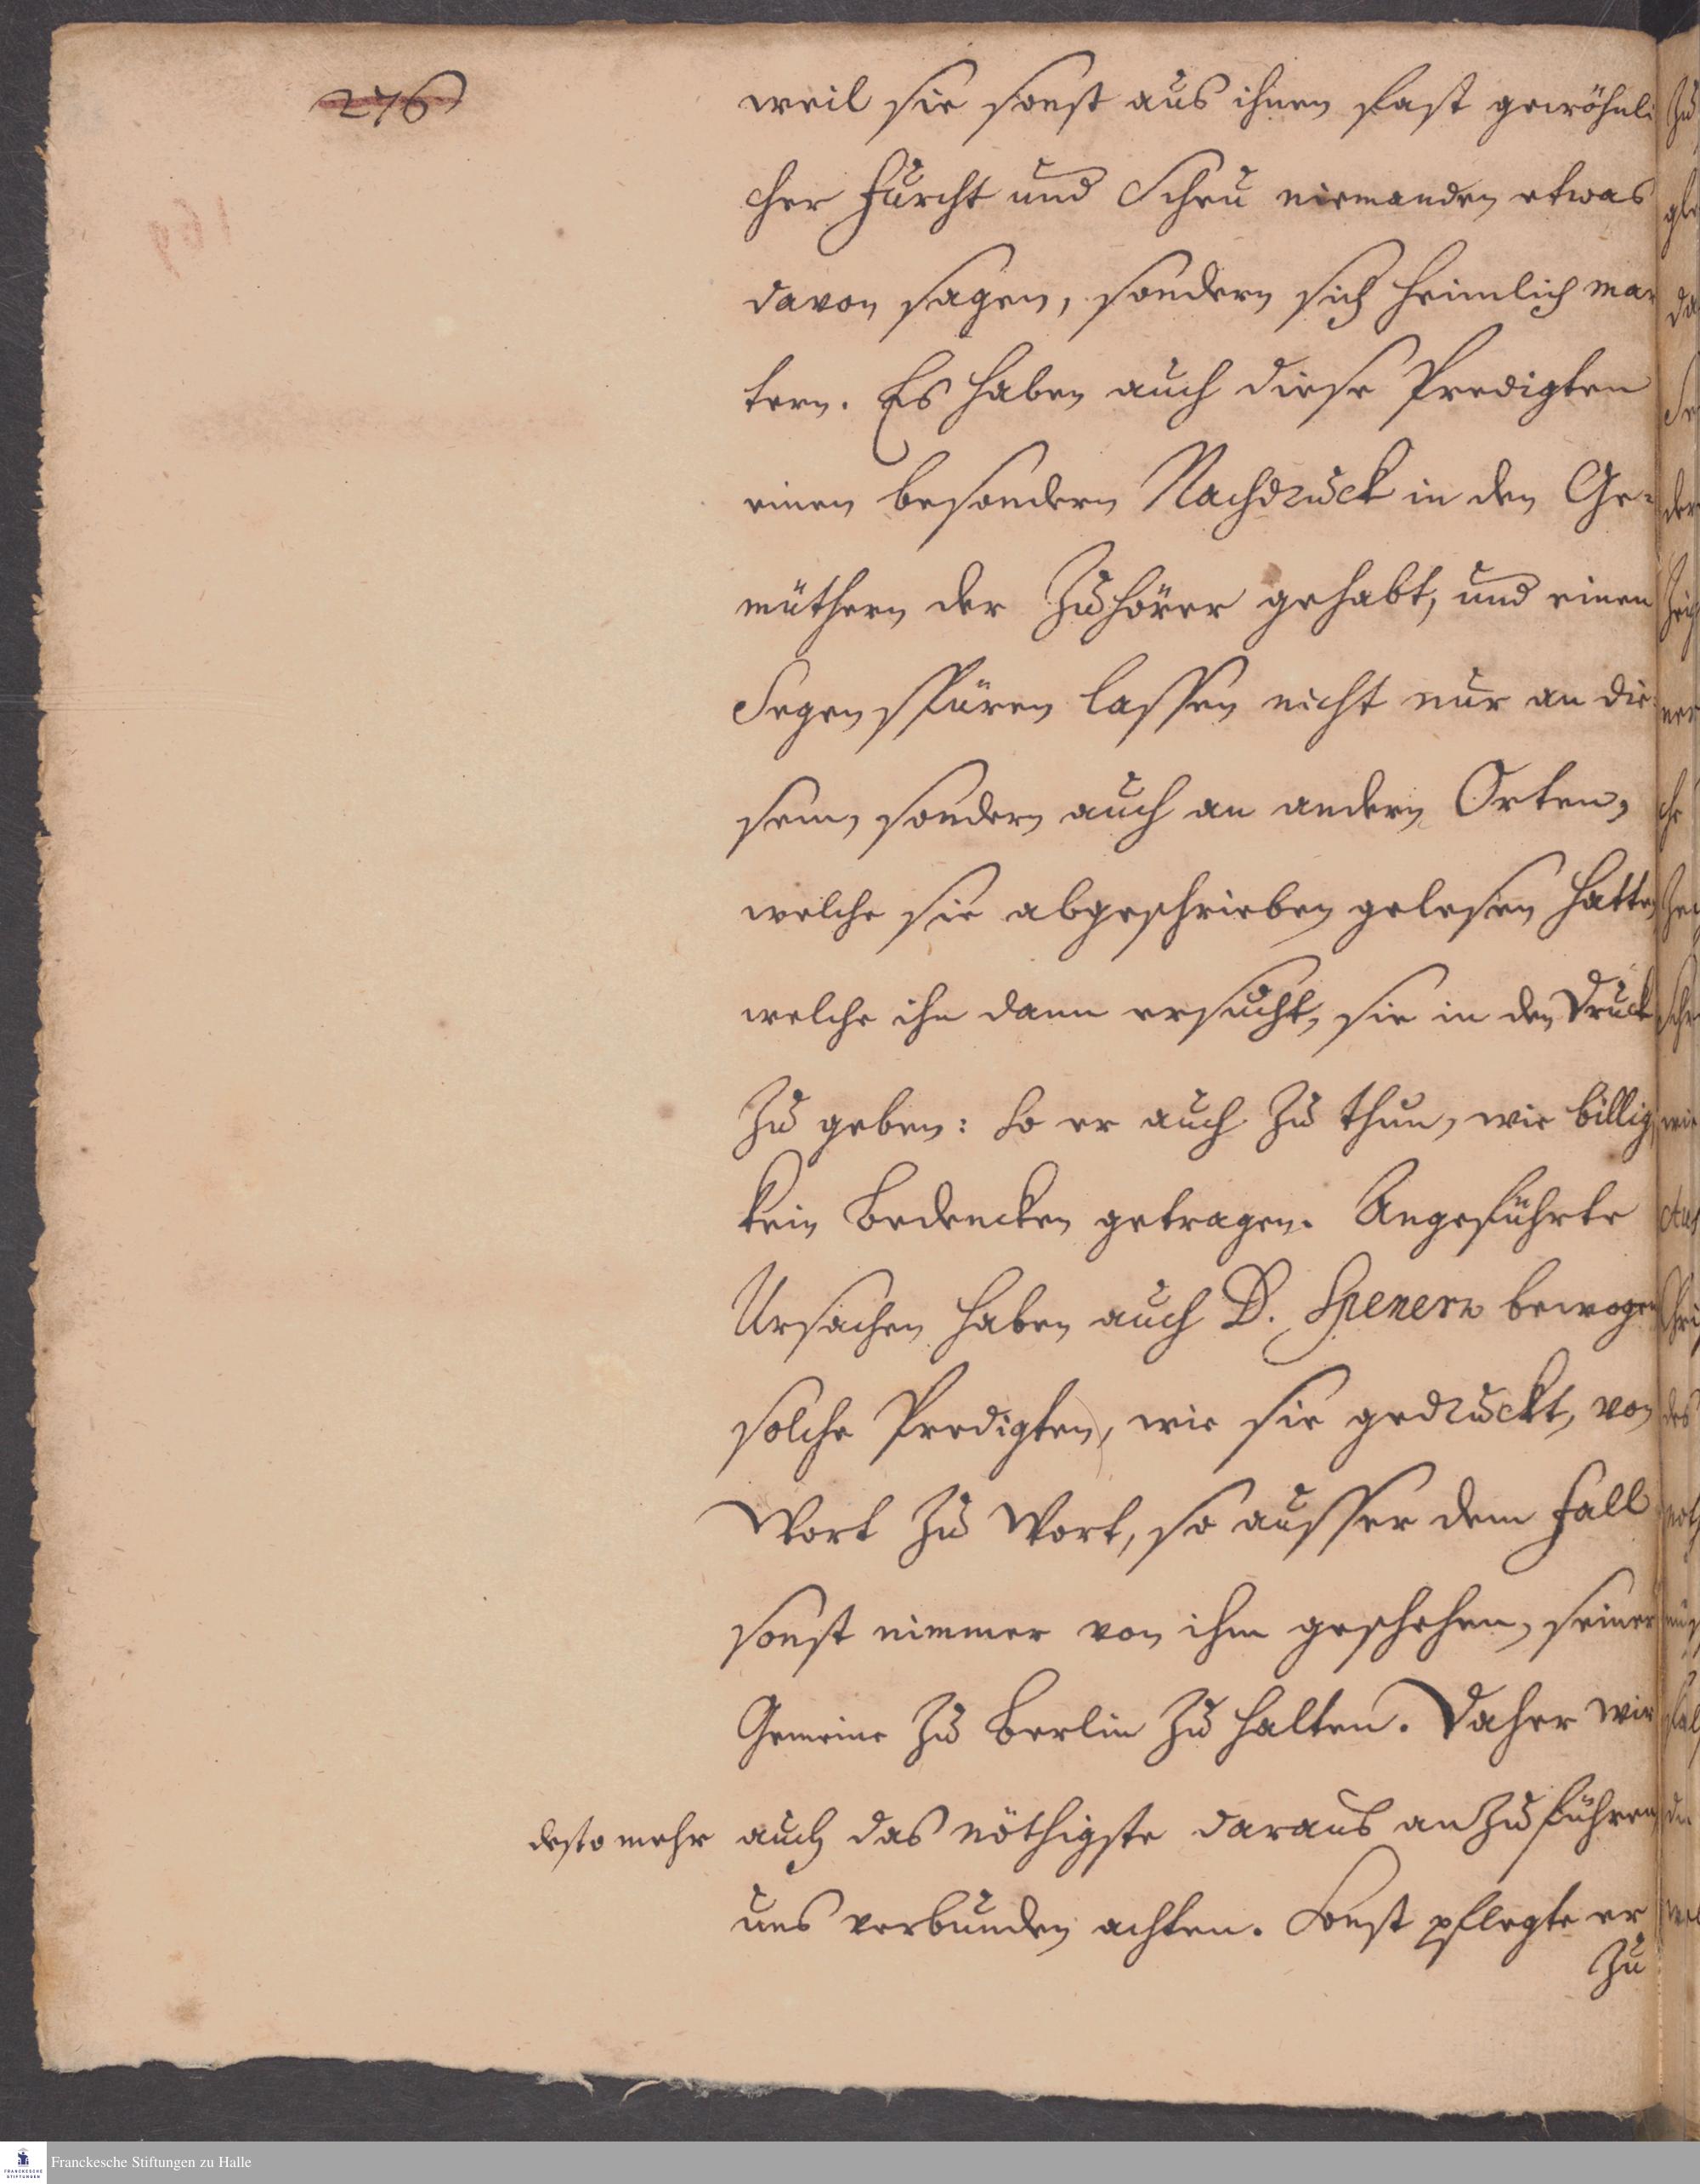 276
weil sie sonst aus ihnen fast gewöhnli
cher Furcht und Scheu niemanden etwas
davon sagen, sondern sich heimlich mar
tern. Es haben auch diese Predigten
einen besondern Nachdruck in den Ge-
müthern der Zuhörer gehabt, und einen
Segen spüren lassen nicht nur an die-
sem, sondern auch an andern Orten,
welche sie abgeschrieben gelesen hatten
welche ihn dann ersucht, sie in den Druck
zu geben: So er auch zu thun, wie billig,
kein Bedencken getragen. Angeführte
Ursachen haben auch D. Spenern bewogen
solche Predigten, wie sie gedruckt, von
Wort zu Wort, so ausser dem Fall
sonst nimmer von ihm geschehen, seiner
Gemeine zu Berlin zu halten. Daher wir
desto mehr auch das nöthigste daraus anzuführen
uns verbunden achten. Sonst pflegte er
zu
Franckesche Stiftungen zu Halle